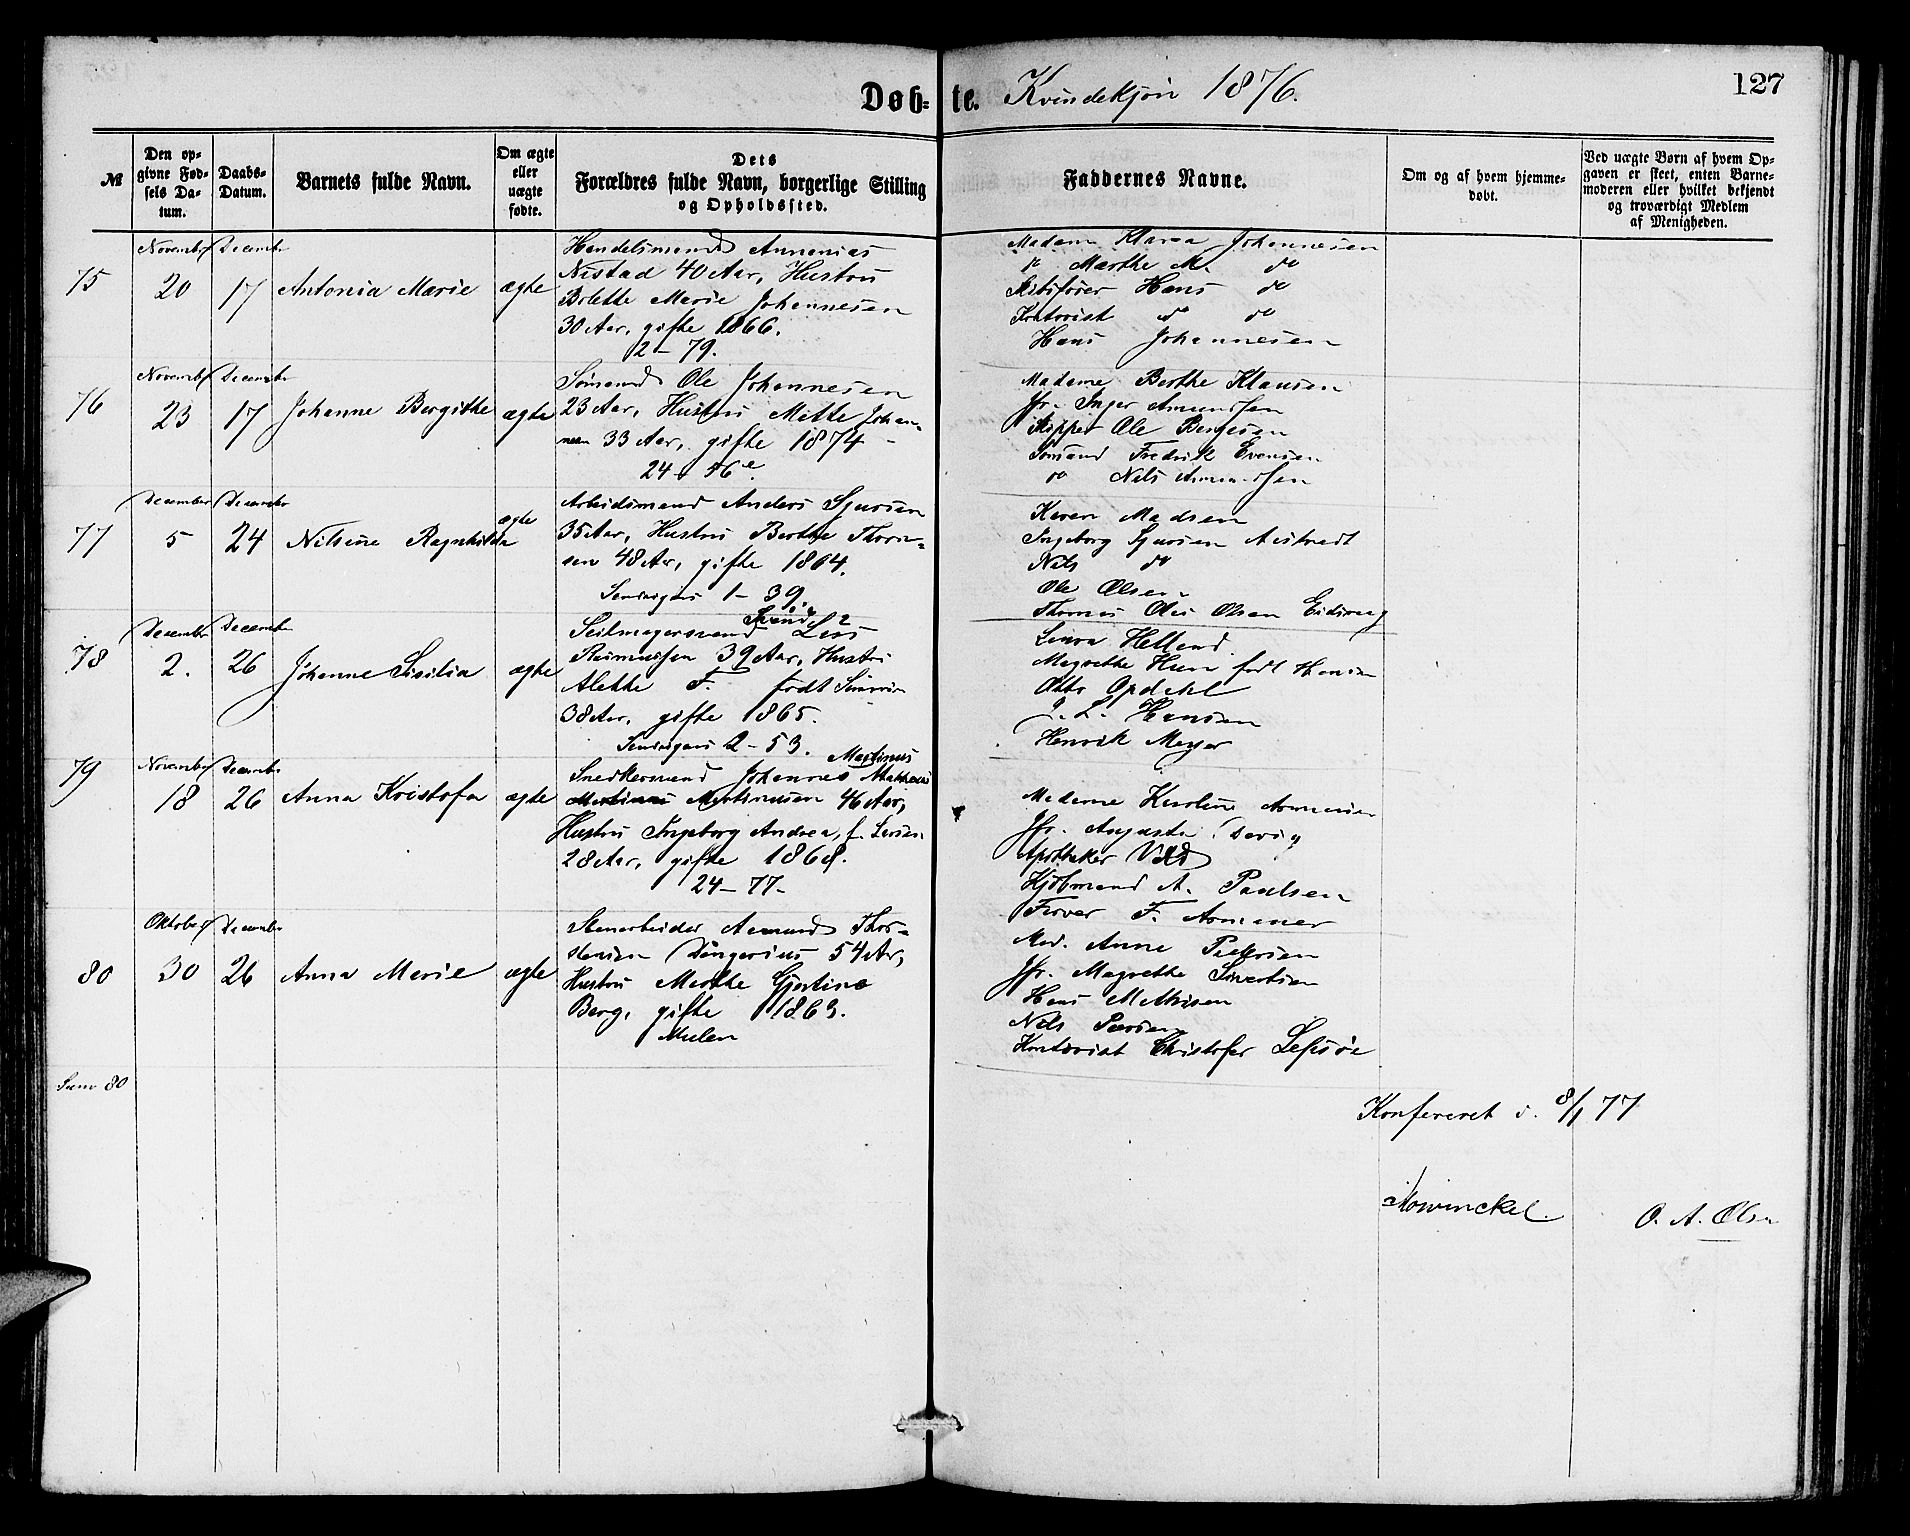 Døb- te. Kvindekjön 1876.
127
№
Den op-
givne Fød-
sels Da-
tum.
Daabs-
Datum.
Barnets fulde Navn.
Om ægte
eller
uægte
fødte.
Dets
Forældres fulde Navn, borgerlige Stilling
og Opholdssted.
Faddernes Navne.
Om og af hvem hjemme-
døbt.
Ved uægte Børn af hvem Op-
gaven er skeet, enten Barne-
moderen eller hvilket bekjendt
og troværdigt Medlem
af Menigheden.
75
November
20
December
17
Antonia Marie
ægte
Handelsmand Annanias
Nestad 40 Aar, Hustru
Bolette Marie Johannesen
30 Aar, gifte 1866.
2 - 79.
Madam Klara Johannesen
do Marthe M. do
Hans do
Kontorist do do
Hans Johannesen
76
November
23
December
17
Johanne Bergithe
ægte
Sömand Ole Johannesen
23 Aar, Hustru Mette Johan-
nesen 33 Aar, gifte 1874 -
24 - 56 e
Madame Berthe Klausen
Jfr. Inger Amundsen
Skipper Ole Bergesen
Sömand Fredrik Evensen
do Nels Amundsen
77
December
5
December
24
Nilsine Ragnhilda
ægte
Arbeidsmand Anders Sjursen
35 Aar, Hustru Berthe Thom-
sen 48 Aar, gifte 1864.
1 - 39.
Karen Madsen
Ingeborg Sjursen
Nils do
Ole Olsen
Thomas Olai Olsen
78
December
2.
December
26
Johanne Sisilia
ægte
Seilmagersvend
Rasmussen 39 Aar, Hustru
Alette F. født
38 Aar, gifte 1865.
2 - 53.
Laura Helland
Magrethe født Hansen
Otto Opdahl
J. L. Hansen
Henrik Meyer
79
November
18
December
26
Anna Kristofa
ægte
Martinus
Snedkersvend Johannes Mathæus
Martinusen 46 Aar,
Hustru Ingeborg Andrea, f. Larsen
28 Aar, gifte 1868.
24 - 77 -
Madame Karoline
Jfr. Augusta
Apotheker
Kjöbmand A. Paulsen
Farver F.
80
Oktober
30
December
26
Anna Marie
ægte
Stenarbeider Aamund Thor-
stensen 54 Aar,
Hustru Marthe Gjertine
Berg, gifte 1863.
Mulen
Mad. Anne Pedersen
Jfr. Magrethe Sivertsen
Hans Mathisen
Nils
Kontorist Christofer Lepsöe
80
Konfereret d. 8/1 77
Mowinckel.
O. A. Olsen